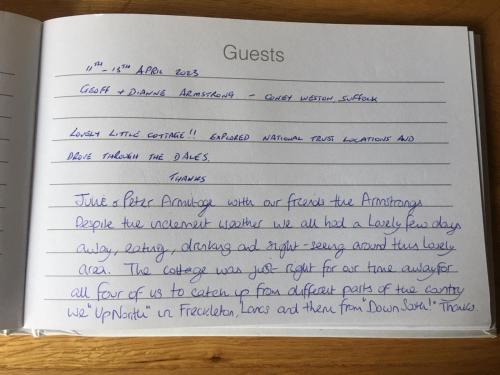 Guests
11TH - 15TH APRIL 2023
GEOFF + DIANNE ARMSTRONG - CONEY WESTON, SUFFOLK
LOVELY LITTLE COTTAGE!! EXPLORED NATIONAL TRUST LOCATIONS AND
DROVE THROUGH THE DALES.
THANKS
Julie & Peter Armitage with our friends the Armstrongs
Despite the inclement weather we all had a lovely few days
away, eating, drinking and sight-seeing around this lovely
area. The cottage was just right for our time away for
all four of us to catch up from different parts of the country
We "Up North" in Freckleton, Lancs and them from "Down South!" Thanks.